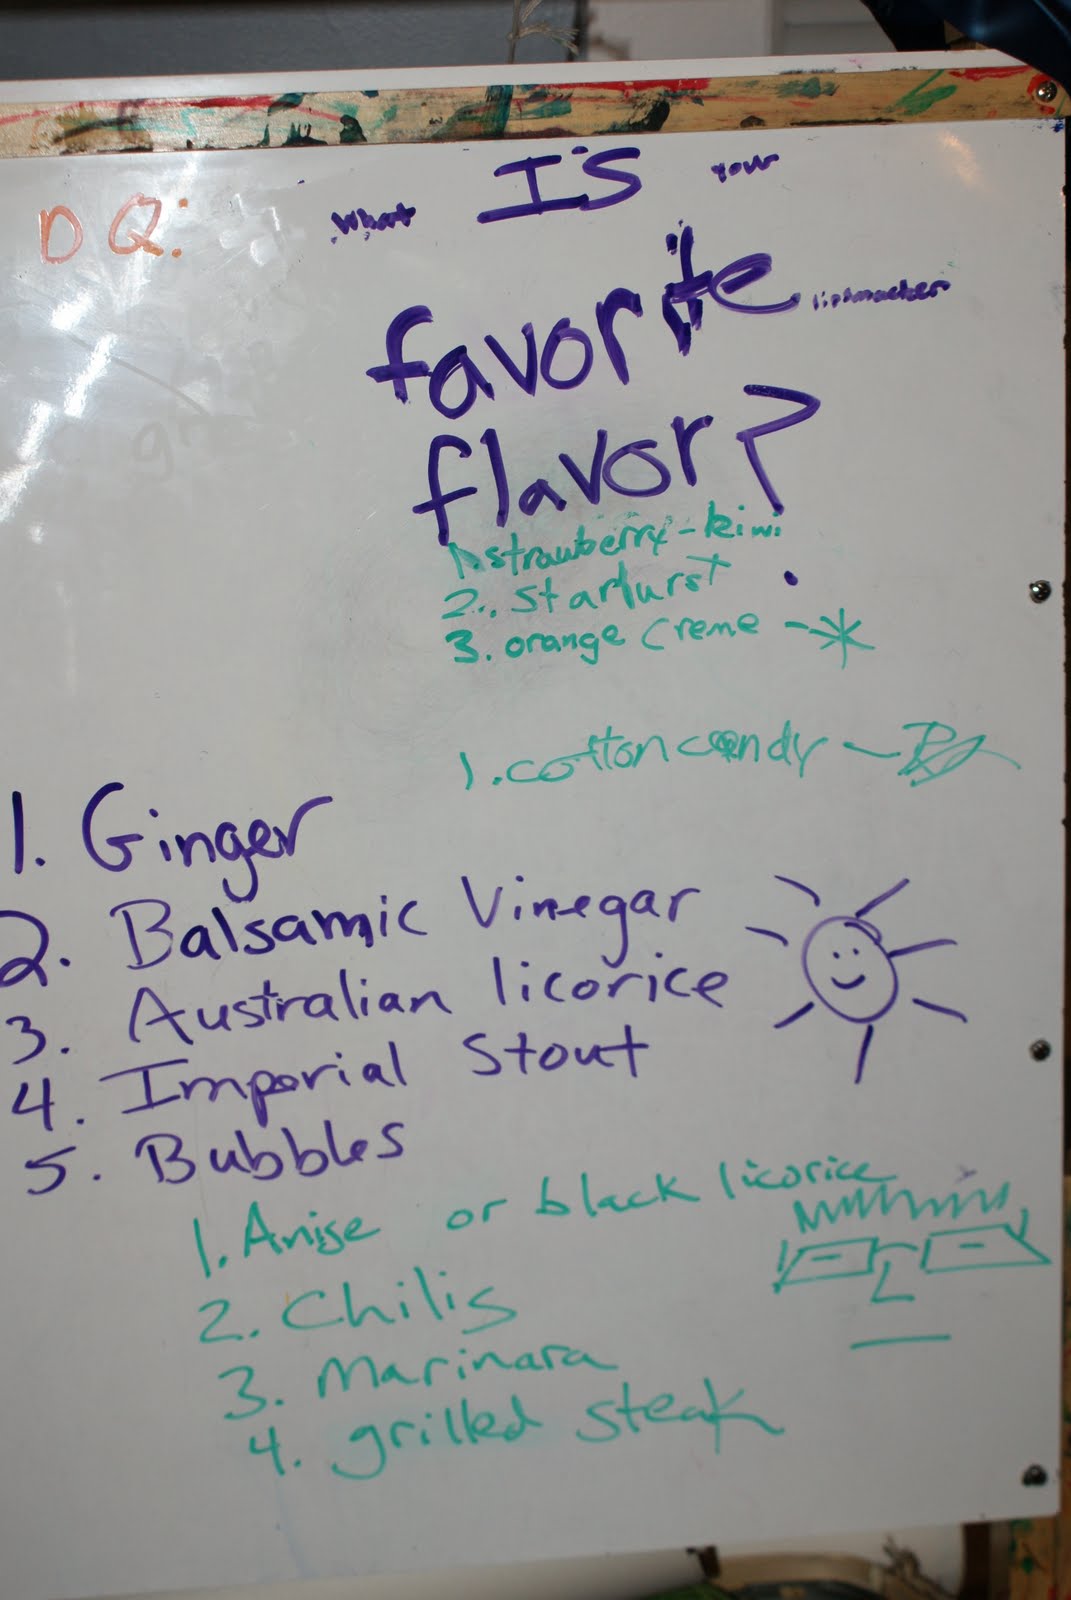 DQ: What IS your
favorite lipsmacker
flavor?
1. strawberry-kiwi
2. Starburst
3. orange creme -*
1. cotton candy -
1. Ginger
2. Balsamic Vinegar
3. Australian licorice
4. Imperial Stout
5. Bubbles
1. Anise or black licorice
2. Chilis
3. Marinara
4. grilled steak